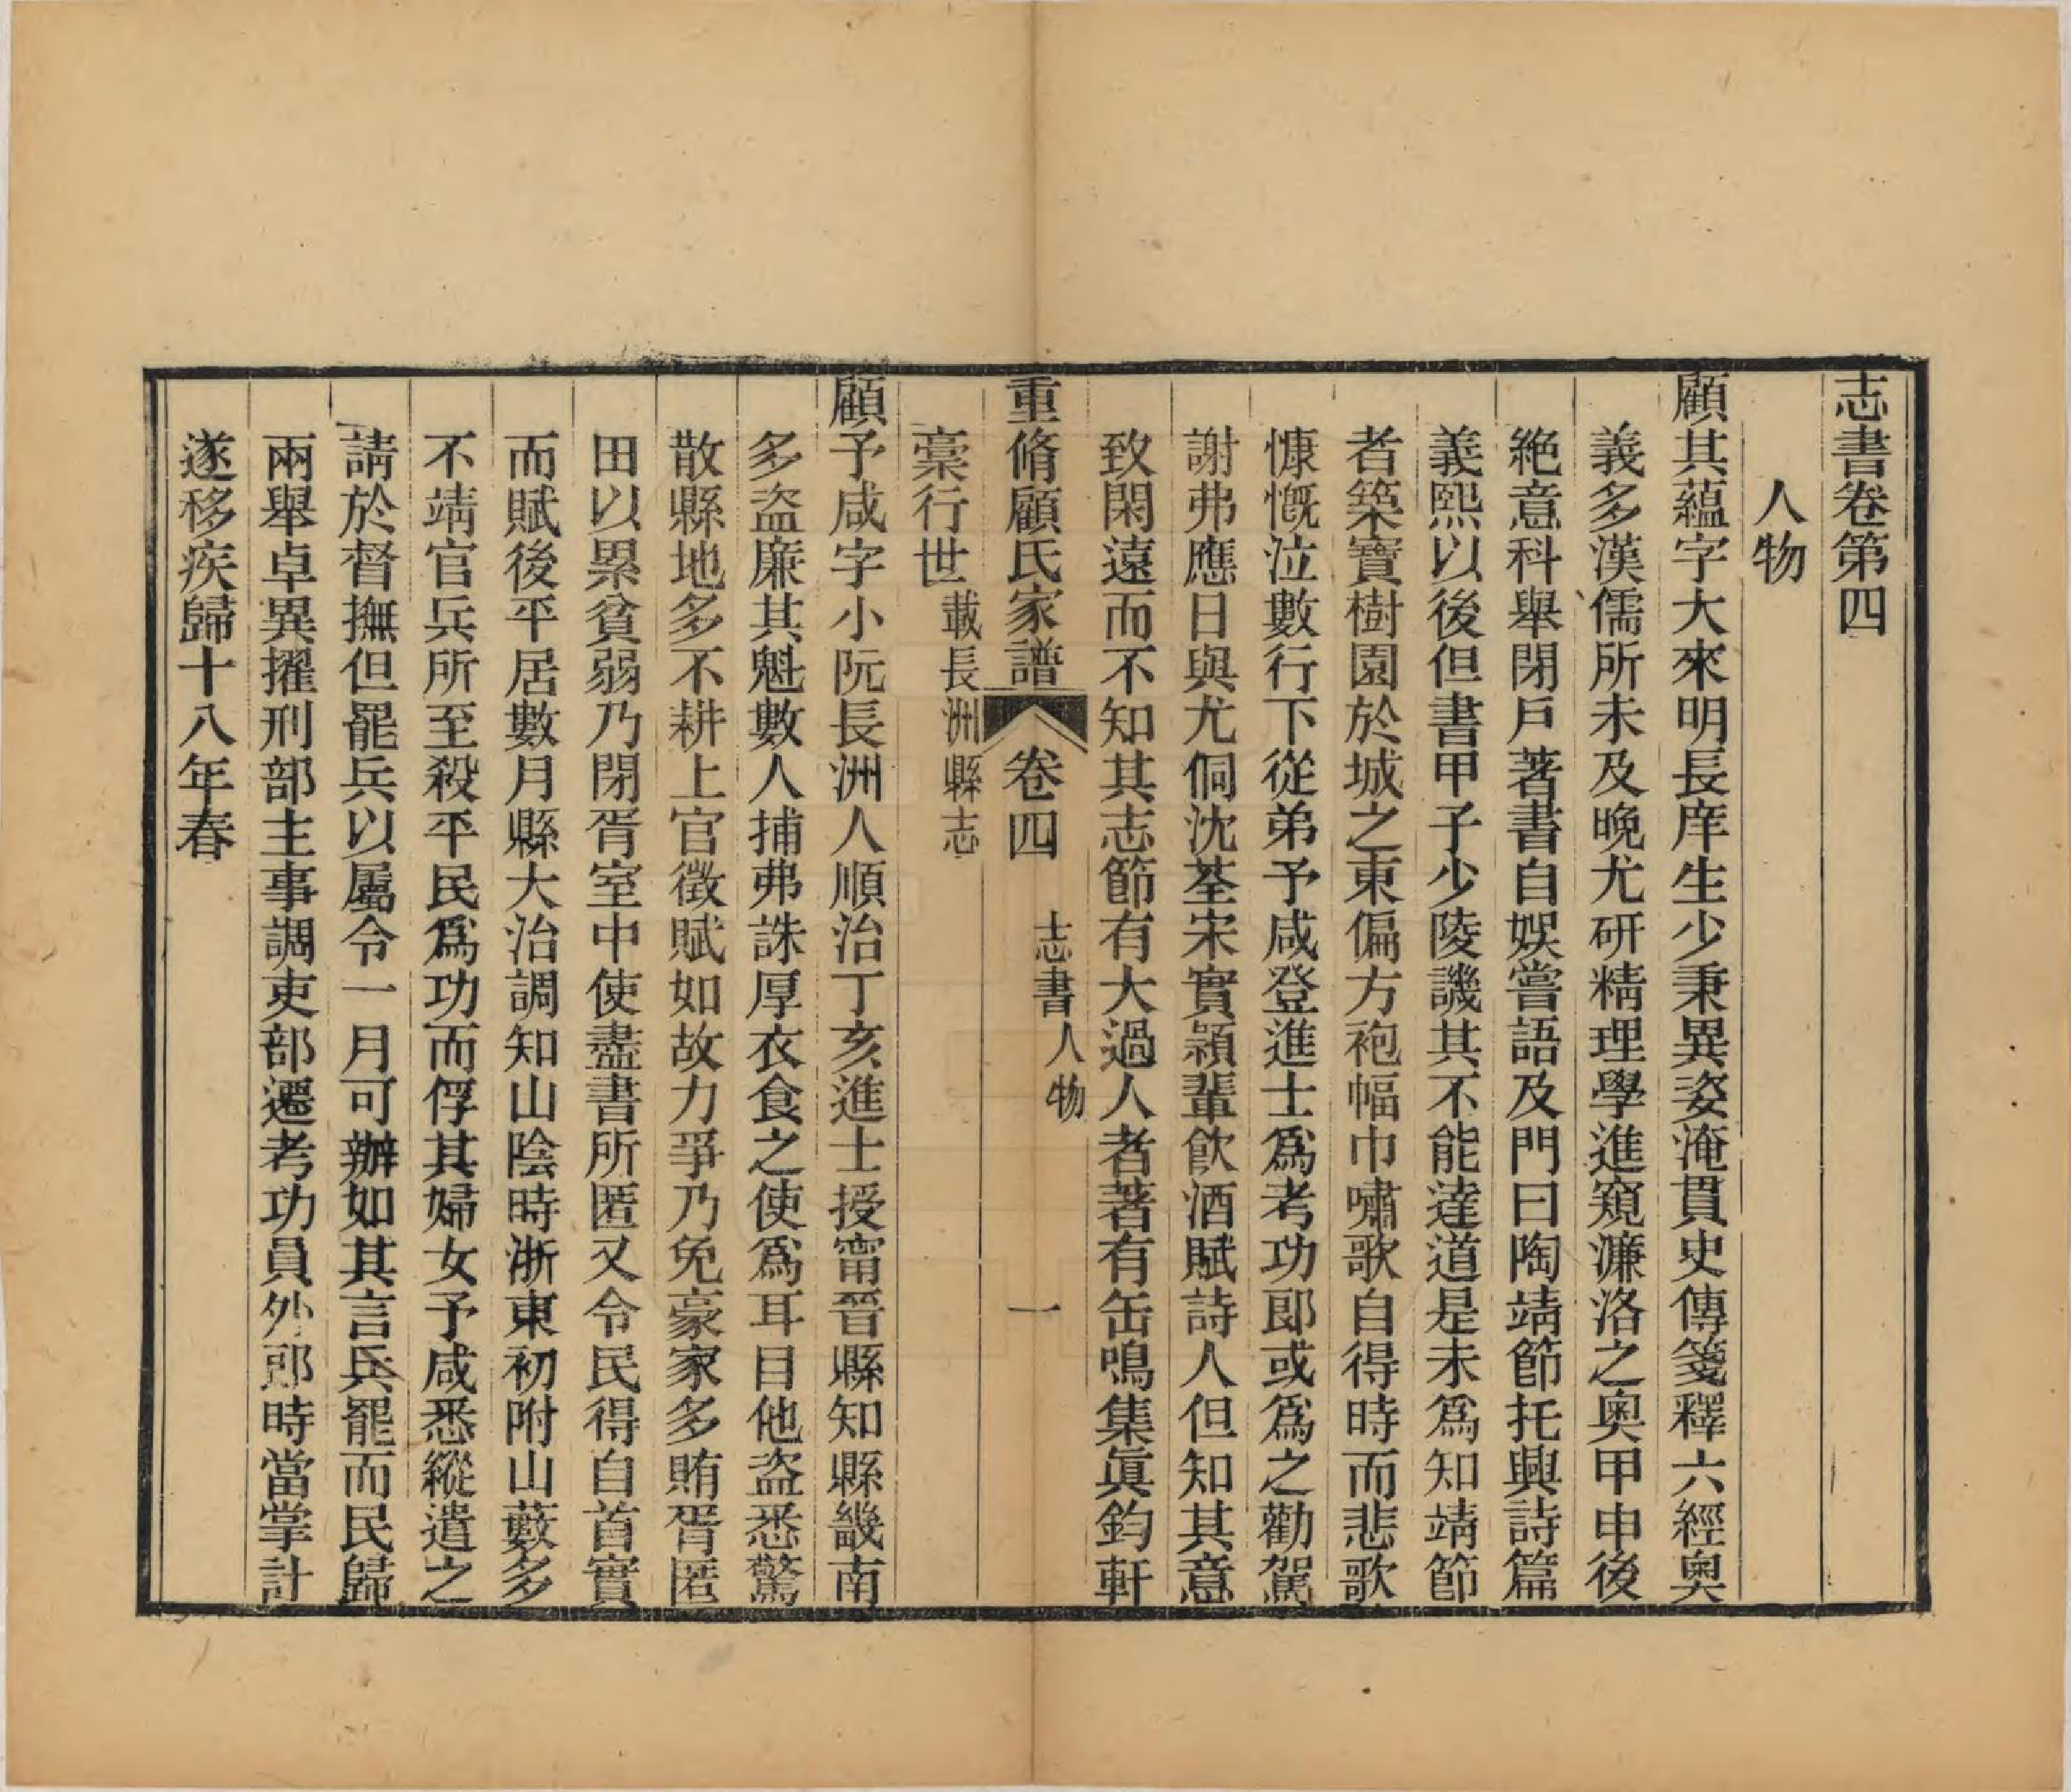 志書卷第四
人物
顧其蘊字大來明長庠生少秉異姿淹貫史傳箋釋六經奧
義多漢儒所未及晚尤研精理學進窺濂洛之奧甲申後
絕意科舉閉戶著書自娛嘗語及門曰陶靖節托興詩篇
義熙以後但書甲子少陵譏其不能達道是未爲知靖節
者築寶樹園於城之東偏方袍幅巾嘯歌自得時而悲歌
慷慨泣數行下從弟予咸登進士爲考功郎或爲之勸駕
謝弗應日與尤侗沈荃宋實穎輩飲酒賦詩人但知其意
致閑遠而不知其志節有大過人者著有缶鳴集眞鈞軒
重脩顧氏家譜 卷四 志書人物 一
稾行世載長洲縣志
顧予咸字小阮長洲人順治丁亥進士授甯晉縣知縣畿南
多盜廉其魁數人捕弗誅厚衣食之使爲耳目他盜悉驚
散縣地多不耕上官徵賦如故力爭乃免豪家多賄胥匿
田以累貧弱乃閉胥室中使盡書所匿又令民得自首實
而賦後平居數月縣大治調知山陰時浙東初附山藪多
不靖官兵所至殺平民爲功而俘其婦女予咸悉縱遣之
請於督撫但罷兵以屬令一月可辦如其言兵罷而民歸
兩舉卓異擢刑部主事調吏部遷考功員外郎時當掌計
遂移疾歸十八年春